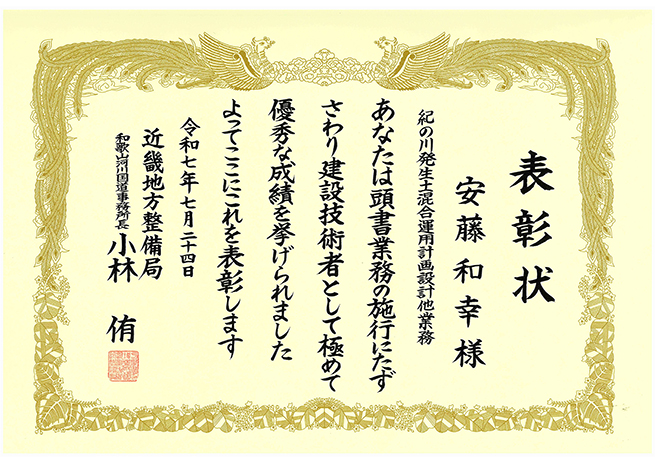 表彰状
安藤和幸様
紀の川発生土混合運用計画設計他業務
あなたは頭書業務の施行にたず
さわり建設技術者として極めて
優秀な成績を挙げられました
よってここにこれを表彰します
令和七年七月二十四日
近畿地方整備局
和歌山河川国道事務所長 小林 侑